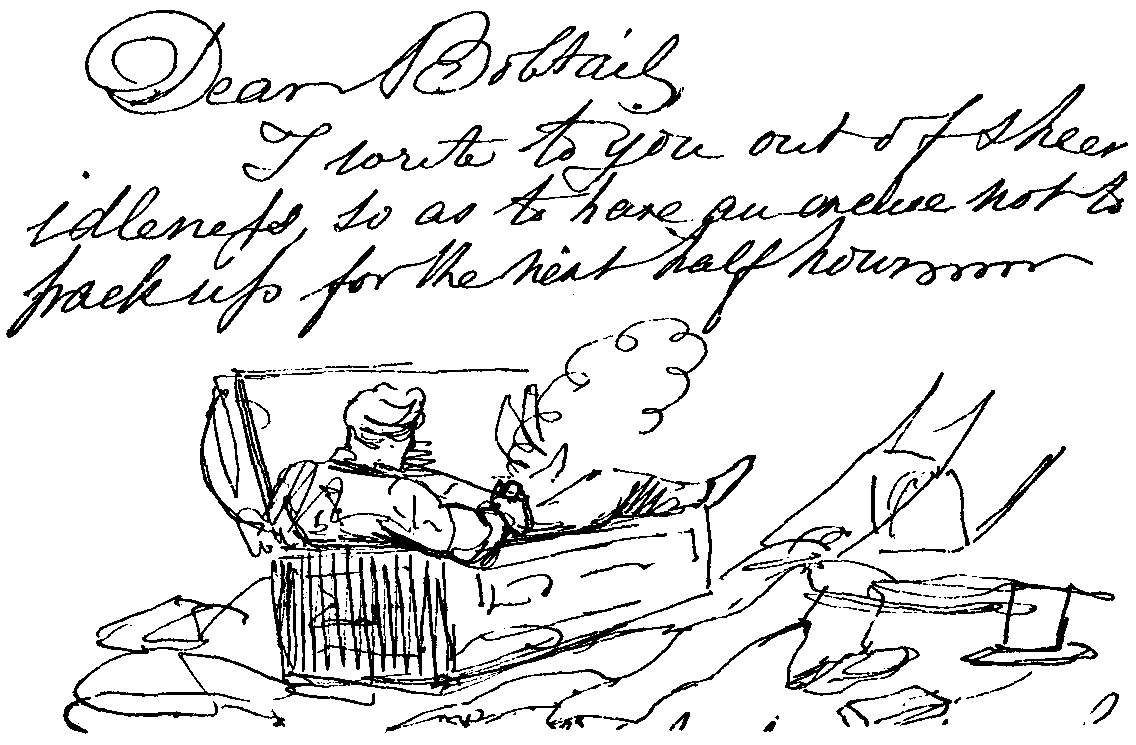 Dear Bobtail
I write to you out of sheer
idleness, so as to have an excuse not to
pack up for the next half hour